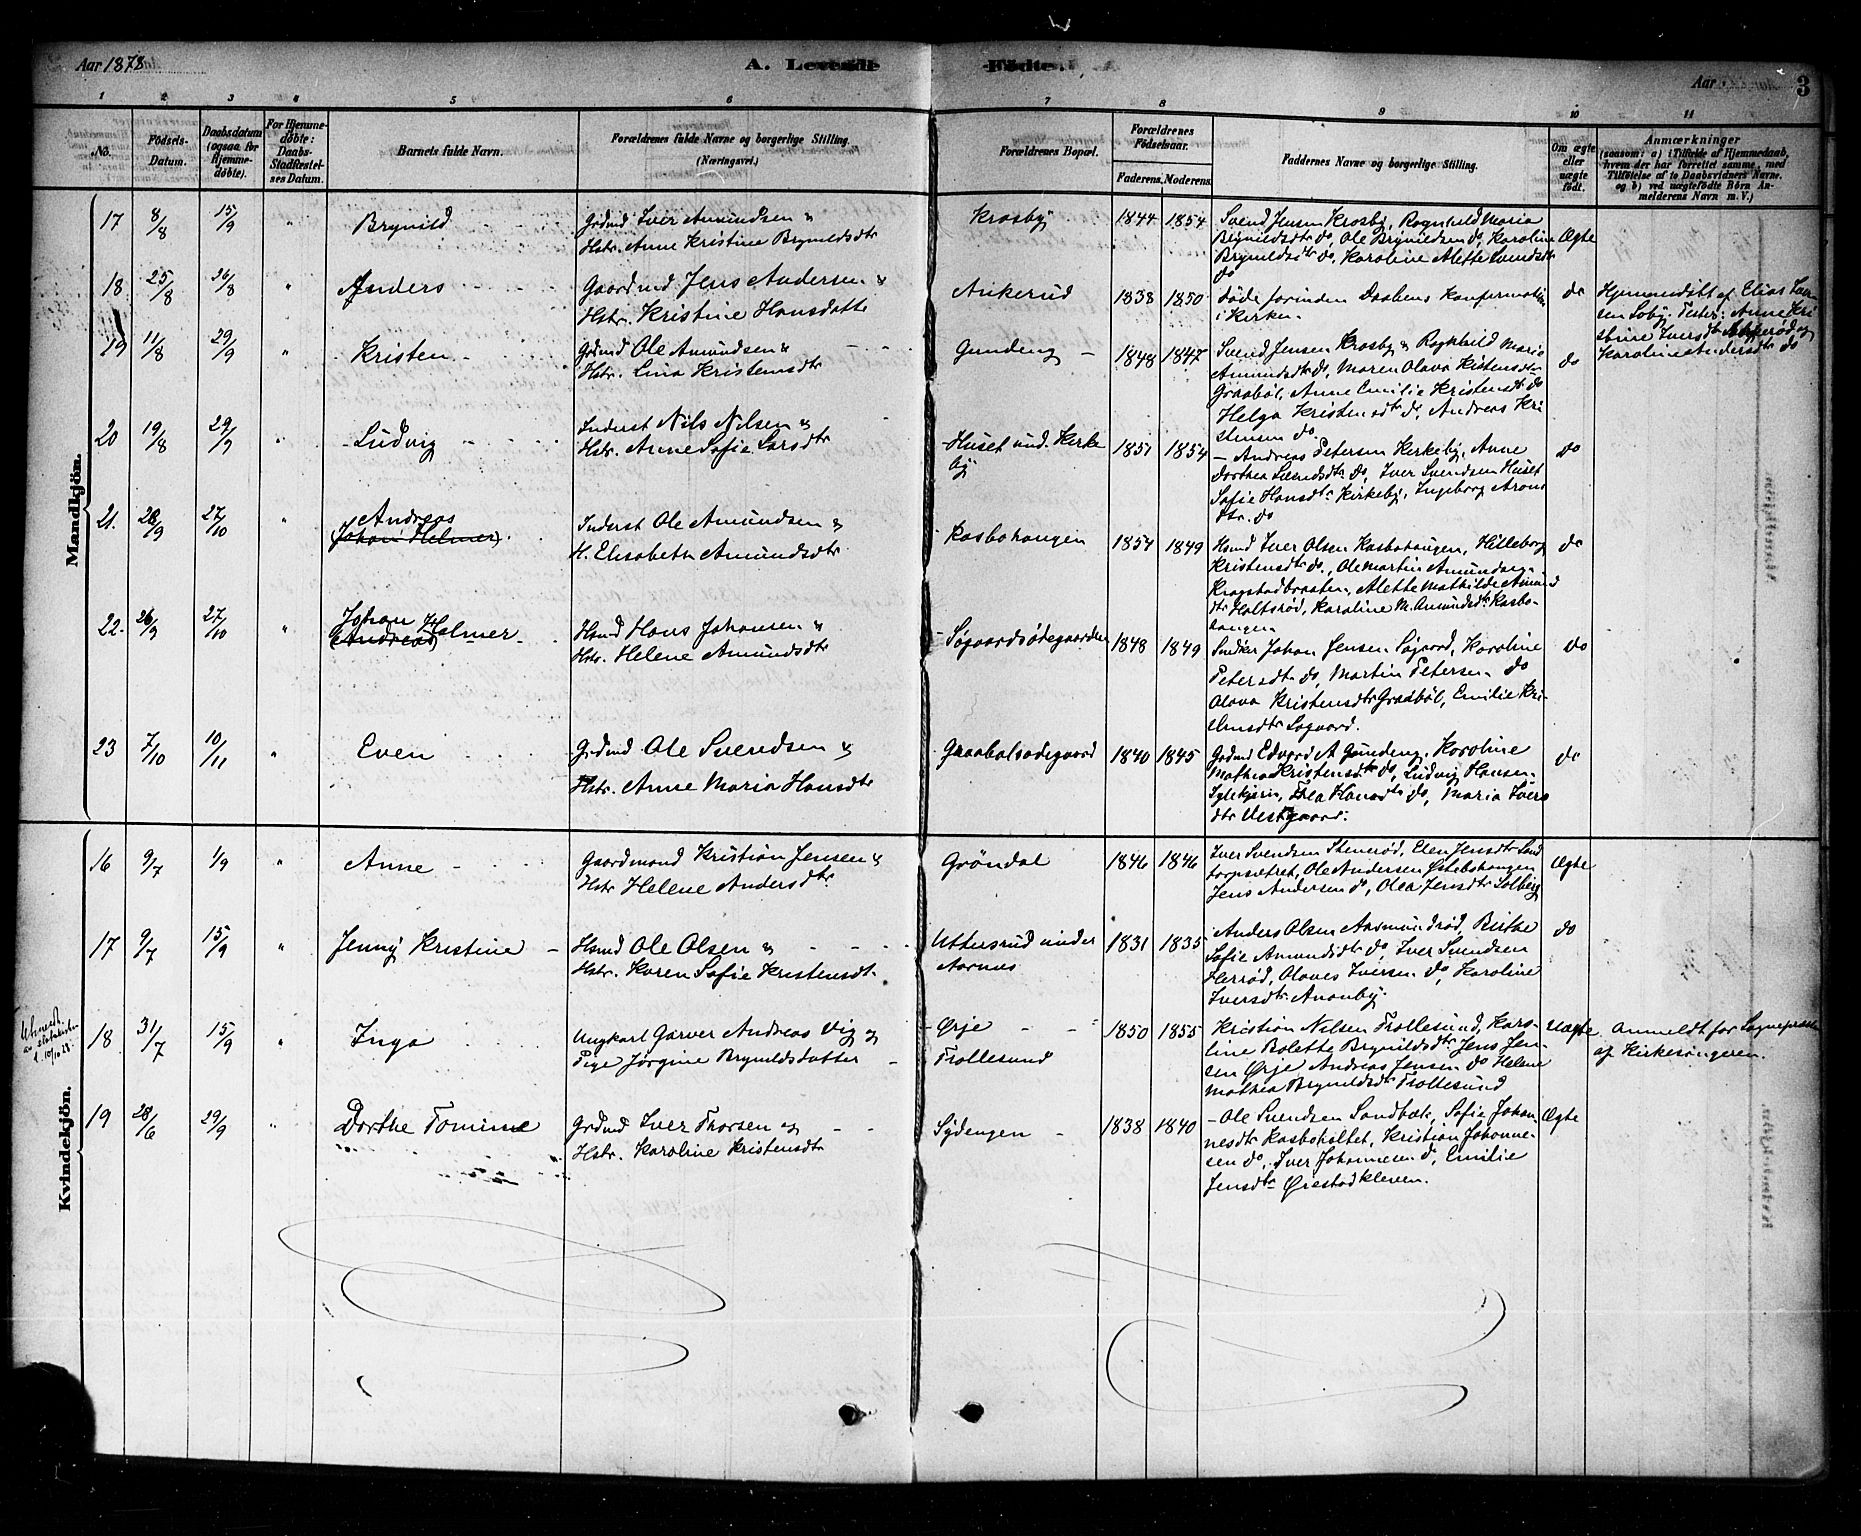 Aar 1878
A. Levende
Fødte.
Aar
3
1 2 3 4 5 6 7 8 9 10 11
No.
Fødsels-
Datum.
Daabsdatum
(ogsaa for
Hjemme-
døbte).
For Hjemme-
døbte:
Daabs-
Stadfæstel-
ses Datum.
Barnets fulde Navn.
Forældrenes fulde Navne og borgerlige Stilling.
(Næringsvei.)
Forældrenes Bopæl.
Forældrenes
Fødselsaar.
Faderens. Moderens.
Faddernes Navne og borgerlige Stilling.
Om ægte
eller
uægte
født.
Anmærkninger
(saasom: a) i Tilfælde af Hjemmedaab,
hvem der har forrettet samme, med
Tilføielse af to Daabsvidners Navne.
og b) ved uægtefødte Børn An-
melderens Navn m. V.)
Mandkjön.
17 8/8 15/9 " Brynild
Grdmd Iver Amundsen &
Hstr. Anne Kristine Brynildsdtr
Krosby 1844 1854
Svend Jensen Krosby, Ragnhild Maria
Brynildsdtr do, Ole Brynildsen do, Karoline
Brynildsdtr do, Karoline Alette Svendsdtr
do
Ægte
18 25/8 26/8 " Anders
Gaardmd Jens Andersen &
Hstr. Kristine Hansdatter
Ankerud 1838 1850
døde forinden Daabens Konfirmation
i Kirken.
do
Hjemmedøbt af Elias
sen Soby. Test: Anne Kri
stine Iversdtr
Karoline Andersdtr do
19 11/8 29/9 " Kristen
Grdmd Ole Amundsen &
Hstr. Lina Kristensdtr
Gundeng 1848 1847
Svend Jensen Krosby & Ragnhild Marie
Amundsdtr do, Maren Olava Kristensdtr
Graabøl, Anne Emilie Kristensdtr do
Helga Kristensdtr do, Andreas Kri
stensen do
do
20 19/8 29/9 " Ludvig
Inderst Nils Nilsen &
Hstr. Anne Sofie Larsdtr
Huset und. Kirke
by
1851 1854
Andreas Petersen Kirkeby, Anne
Dorthea do, Iver Svendsen Huset
Sofie Hansdtr Kirkeby, Ingeborg Arons
dtr. do
do
21. 28/9 27/10 " Andreas
(Johan Helmer)
Inderst Ole Amundsen &
H. Elisabeth Amundsdtr
Kasbohaugen 1854 1849
Hsmd Iver Olsen Kasbohaugen, Hilleborg
Kristensdtr do, Ole Martin Amundsen
Krogstadbraaten, Alette Mathilde Amund
dtr Holtsrød, Karoline M. Amundsdtr Kasbo-
haugen
do
22. 26/9 27/10 " Johan Helmer
(Andreas)
Hsmd Hans Johansen &
Hstr. Helene Amundsdtr
Søgaardsødegaarden 1848 1849
Snedker Johan Jensen Søgaard, Karoline
Petersdtr do, Martin Petersen do
Olava Kristensdtr Graabøl, Emilie Kri-
stensdtr Søgaard.
do
23 7/10 10/11 " Even
Grdmd Ole Svendsen &
Hstr. Anne Maria Hansdtr
Graabølsødegaard 1840 1845
Grdmd Edvard A Gundeng, Karoline
Mathea Kristensdtr do, Ludvig Hansen
Thea Hansdtr do, Maria Ivers
dtr Vestgaard.
do
Kvindekjön.
16 9/7 1/9 " Anne
Gaardmand Kristian Jensen &
Hstr Helene Andersdtr
Grøndal 1846 1846
Iver Svendsen Stenerød, Elen Jensdtr Sand
torpsætret, Ole Andersen Østebohaugen
Jens Andersen do, Olea Jensdtr Solberg
Ægte
17 9/7 15/9 " Jenny Kristine
Hsmd Ole Olsen &
Hstr. Karen Sofie Kristensdtr
Uttersrud under
Aarnes
1831 1835
Anders Olsen Aasmundrød, Birthe
Sofie Amundsdtr do, Iver Svendsen
Herrød, Olaves Iversen do, Karoline
Iversdtr Anonby.
do
18 31/7 15/9 " Inga
Ungkarl Garver Andreas Vig og
Pige Jørgine Brynildsdatter
Ørje
Trollesund
1850 1855
Kristian Nilsen Trollesund, Karo-
line Bolette Brynildsdtr, Jens Jen-
sen Ørje, Andreas Jensen do, Helene
Mathea Brynildsdtr Trollesund
Uægte
Anmeldt for Sognepræsten
af Kirkesangeren.
19 28/6 29/9 " Dorthe Tomine
Grdmd Iver Thorsen og
Hstr. Karoline Kristensdtr
Sydengen 1838 1840
Ole Svendsen Sandbæk, Sofie Johan
nesdtr Kasboholtet, Kristian Johanne-
sen do, Iver Johannesen do, Emilie
Jensdtr Ørestadkleven.
Ægte